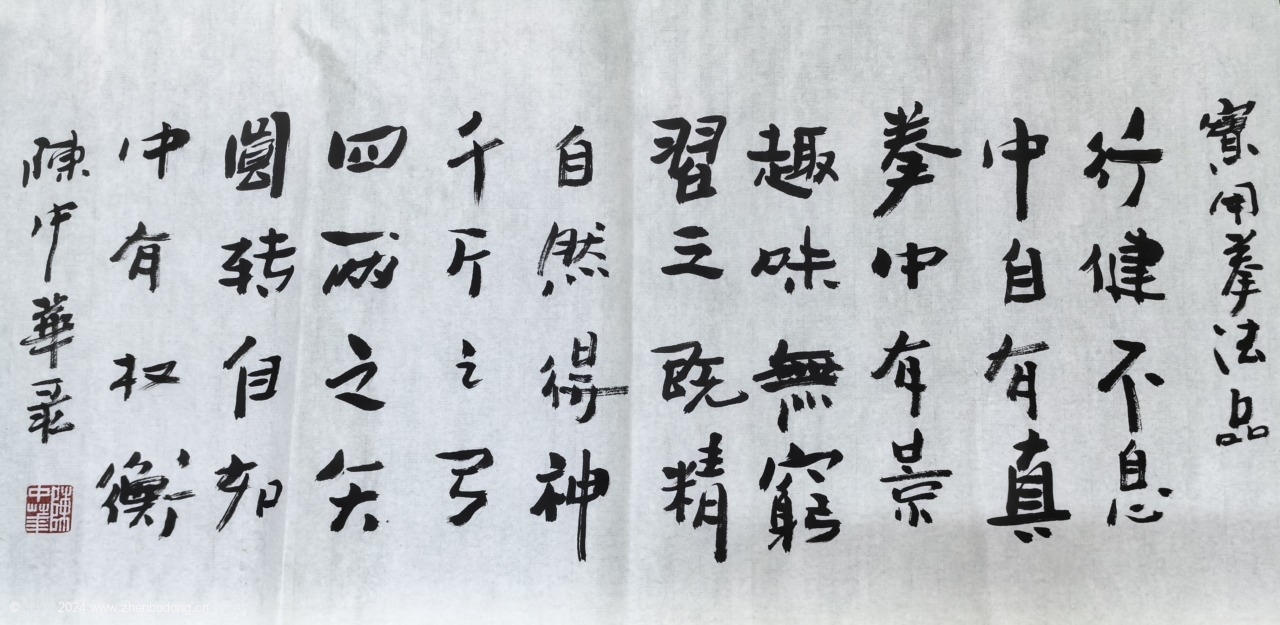 實用拳法品
行健不息
中自有真
拳中有景
趣味無窮
習之既精
自然得神
千斤之弓
四两之矢
圓转自如
中有权衡
陳中華录
陳中華印
© 2024 www.zhenbudong.cn